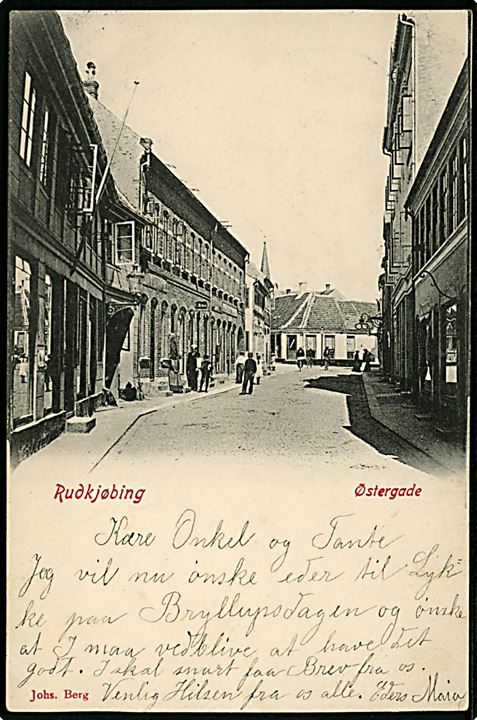 Rudkjøbing
Østergade
Kære Onkel og Tante
Jeg vil nu ønske eder til Lyk=
ke paa Bryllupsdagen og ønske
at I maa vedblive at have det
godt. I skal snart faa Brev fra os.
Venlig Hilsen fra os alle. Eders Maia
Johs. Berg